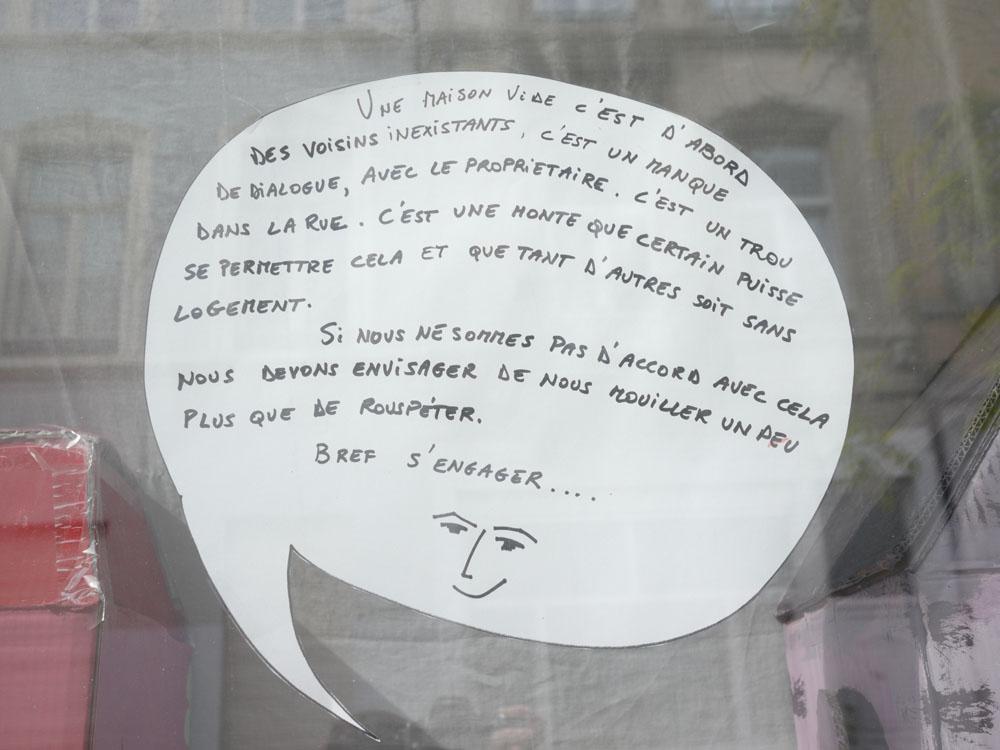 UNE MAISON VIDE C'EST D'ABORD
DES VOISINS INEXISTANTS, C'EST UN MANQUE
DE DIALOGUE, AVEC LE PROPRIETAIRE. C'EST UN TROU
DANS LA RUE. C'EST UNE HONTE QUE CERTAIN PUISSE
SE PERMETTRE CELA ET QUE TANT D'AUTRES SOIT SANS
LOGEMENT.
SI NOUS NE SOMMES PAS D'ACCORD AVEC CELA
NOUS DEVONS ENVISAGER DE NOUS MOUILLER UN PEU
PLUS QUE DE ROUSPÉTER.
BREF S'ENGAGER....